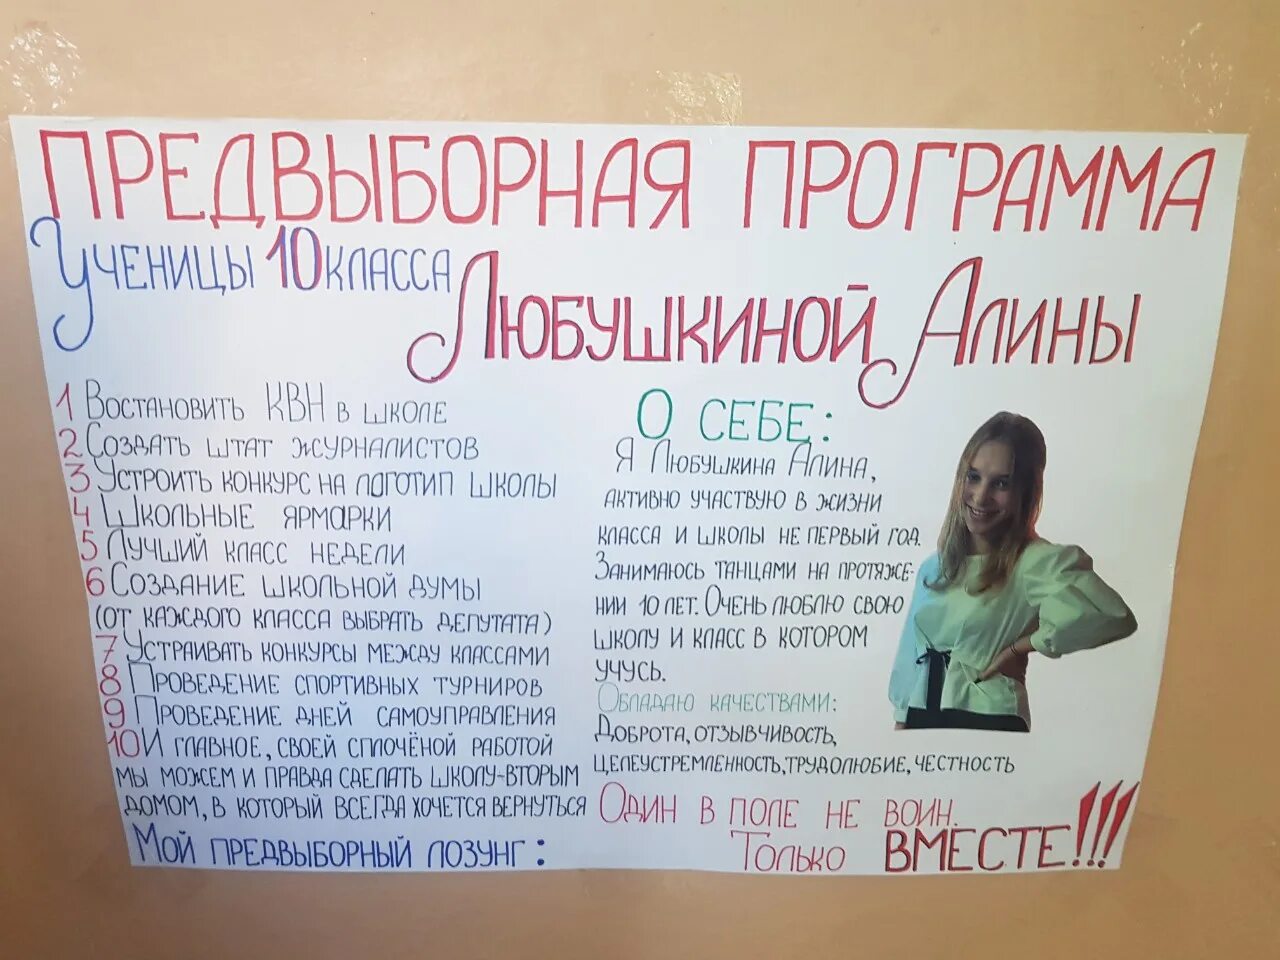 ПРЕДВЫБОРНАЯ ПРОГРАММА
Ученицы 10 класса
Любушкиной Алины
1 Востановить КВН в школе
2 Создать штат журналистов
3 Устроить конкурс на логотип школы
4 Школьные ярмарки
5 Лучший класс недели
6 Создание школьной думы
(от каждого класса выбрать депутата)
7 Устраивать конкурсы между классами
8 Проведение спортивных турниров
9 Проведение дней самоуправления
10 И главное, своей сплочёной работой
мы можем и правда сделать школу-вторым
домом, в который всегда хочется вернуться
О СЕБЕ:
Я Любушкина Алина,
активно участвую в жизни
класса и школы не первый год.
Занимаюсь танцами на протяже-
нии 10 лет. Очень люблю свою
школу и класс в котором
учусь.
Обладаю качествами:
Доброта, отзывчивость,
целеустремленность, трудолюбие, честность
Мой предвыборный лозунг:
Один в поле не воин.
Только ВМЕСТЕ!!!